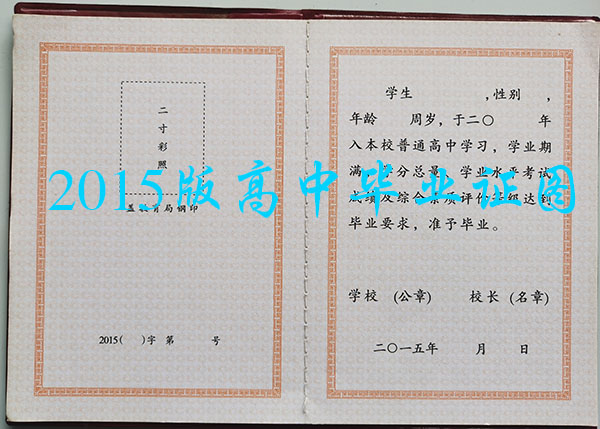 二
寸
彩
照
盖教育局钢印
2015( )字 第 号
学生 ,性别 ,
年龄 周岁,于二〇 年
入本校普通高中学习,学业期
满,学分总量、学业水平考试
成绩及综合素质评价等级达到
毕业要求,准予毕业。
学校 (公章) 校长 (名章)
二〇一五年 月 日
2015版高中毕业证图